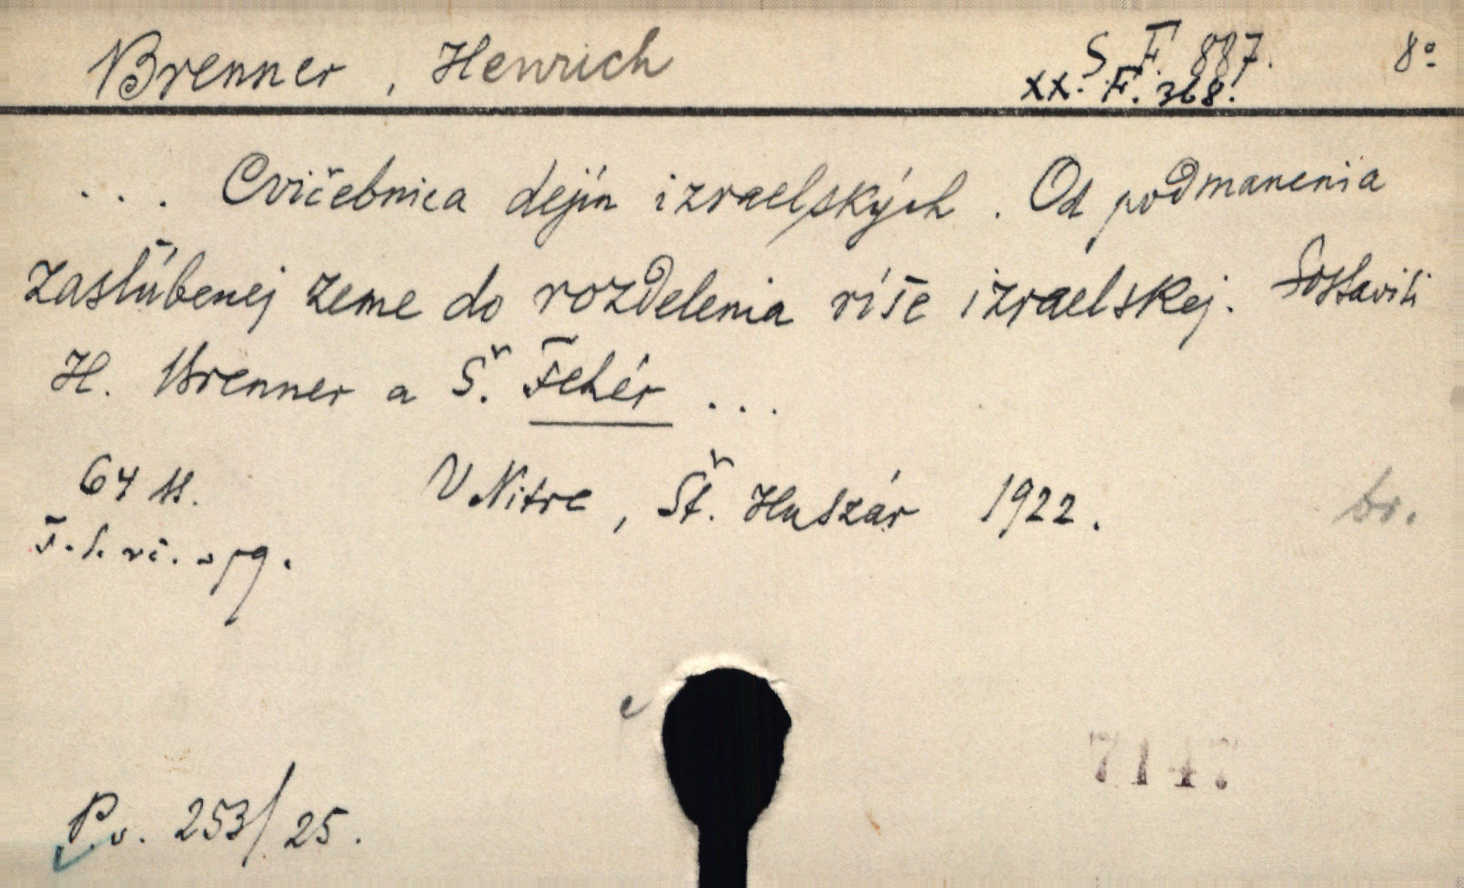 Brenner, Henrich S. F. 887. 8°
XX. F. 368.
... Cvičebnica dejín izraelských. Od podmanenia
zasľúbenej zeme do rozdelenia ríše izraelskej. Sostavili
H. Brenner a Š. Fehér ...
64 ss. V Nitre, Št. Huszár 1922. br.
7147.
P.v. 253/25.